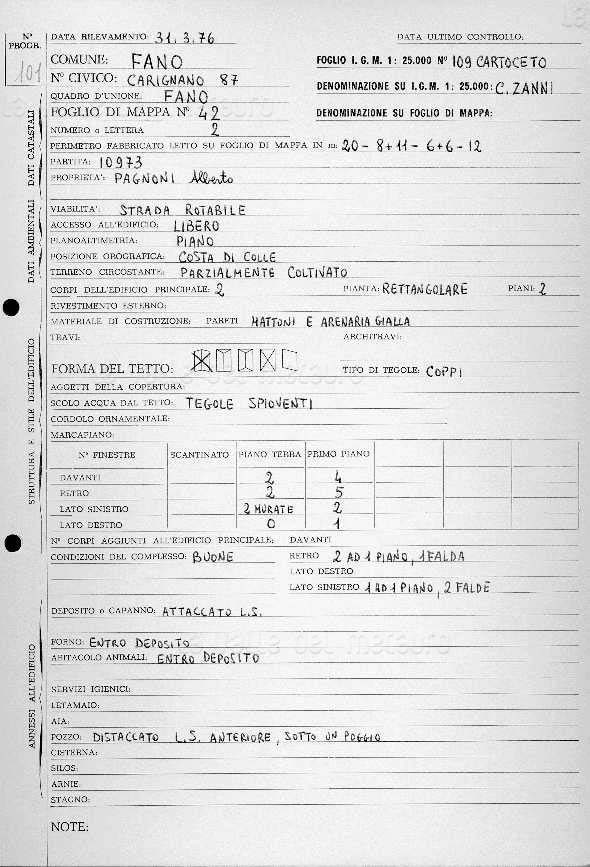 Nº PROGR.
101
DATA RILEVAMENTO: 31.3.76
DATA ULTIMO CONTROLLO:
COMUNE: FANO
FOGLIO I.G.M. 1:25.000 Nº 109 CARTOCETO
Nº CIVICO: CARIGNANO 87
DENOMINAZIONE SU I.G.M. 1:25.000: C. ZANNI
QUADRO D'UNIONE: FANO
FOGLIO DI MAPPA Nº 42
DENOMINAZIONE SU FOGLIO DI MAPPA:
NUMERO o LETTERA 2
PERIMETRO FABBRICATO LETTO SU FOGLIO DI MAPPA IN m: 20-8+11-6+6-12
PARTITA: 10973
PROPRIETA': PAGNONI Alberto
DATI CATASTALI
VIABILITA': STRADA ROTABILE
ACCESSO ALL'EDIFICIO: LIBERO
PLANOALTIMETRIA: PIANO
POSIZIONE OROGRAFICA: COSTA DI COLLE
TERRENO CIRCOSTANTE: PARZIALMENTE COLTIVATO
DATI AMBIENTALI
CORPI DELL'EDIFICIO PRINCIPALE: 2 PIANTA: RETTANGOLARE PIANI: 2
RIVESTIMENTO ESTERNO:
MATERIALE DI COSTRUZIONE: PARETI MATTONI E ARENARIA GIALLA
TRAVI: ARCHITRAVI:
FORMA DEL TETTO: TIPO DI TEGOLE: COPPI
AGGETTI DELLA COPERTURA:
SCOLO ACQUA DAL TETTO: TEGOLE SPIOVENTI
CORDOLO ORNAMENTALE:
MARCAPIANO:
STRUTTURA E STILE DELL'EDIFICIO
Nº FINESTRE SCANTINATO PIANO TERRA PRIMO PIANO
DAVANTI 2 4
RETRO 2 5
LATO SINISTRO 2 MURATE 2
LATO DESTRO 0 1
Nº CORPI AGGIUNTI ALL'EDIFICIO PRINCIPALE: DAVANTI
CONDIZIONI DEL COMPLESSO: BUONE RETRO 2 AD 1 PIANO, 1 FALDA
LATO DESTRO
LATO SINISTRO 1 AD 1 PIANO, 2 FALDE
DEPOSITO o CAPANNO: ATTACCATO L.S.
FORNO: ENTRO DEPOSITO
ABITACOLO ANIMALI: ENTRO DEPOSITO
SERVIZI IGIENICI:
LETAMAIO:
AIA:
POZZO: DISTACCATO L.S. ANTERIORE, SOTTO UN POGGIO
CISTERNA:
SILOS:
ARNIE:
STAGNO:
ANNESSI ALL'EDIFICIO
NOTE: